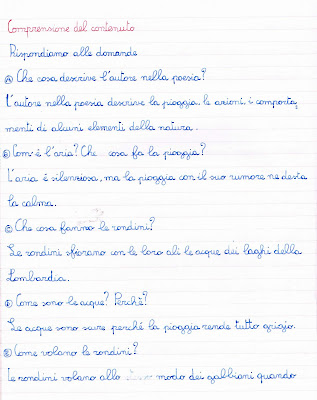 Comprensione del contenuto
Rispondiamo alle domande
A Che cosa descrive l'autore nella poesia?
L'autore nella poesia descrive la pioggia, le azioni, i comporta
menti di alcuni elementi della natura.
B Com'è l'aria? Che cosa fa la pioggia?
L'aria è silenziosa, ma la pioggia con il suo rumore ne desta
la calma.
C Che cosa fanno le rondini?
Le rondini sfiorano con le loro ali le acque dei laghi della
Lombardia.
D Come sono le acque? Perchè?
Le acque sono scure perché la pioggia rende tutto grigio.
E Come volano le rondini?
Le rondini volano allo modo dei gabbiani quando